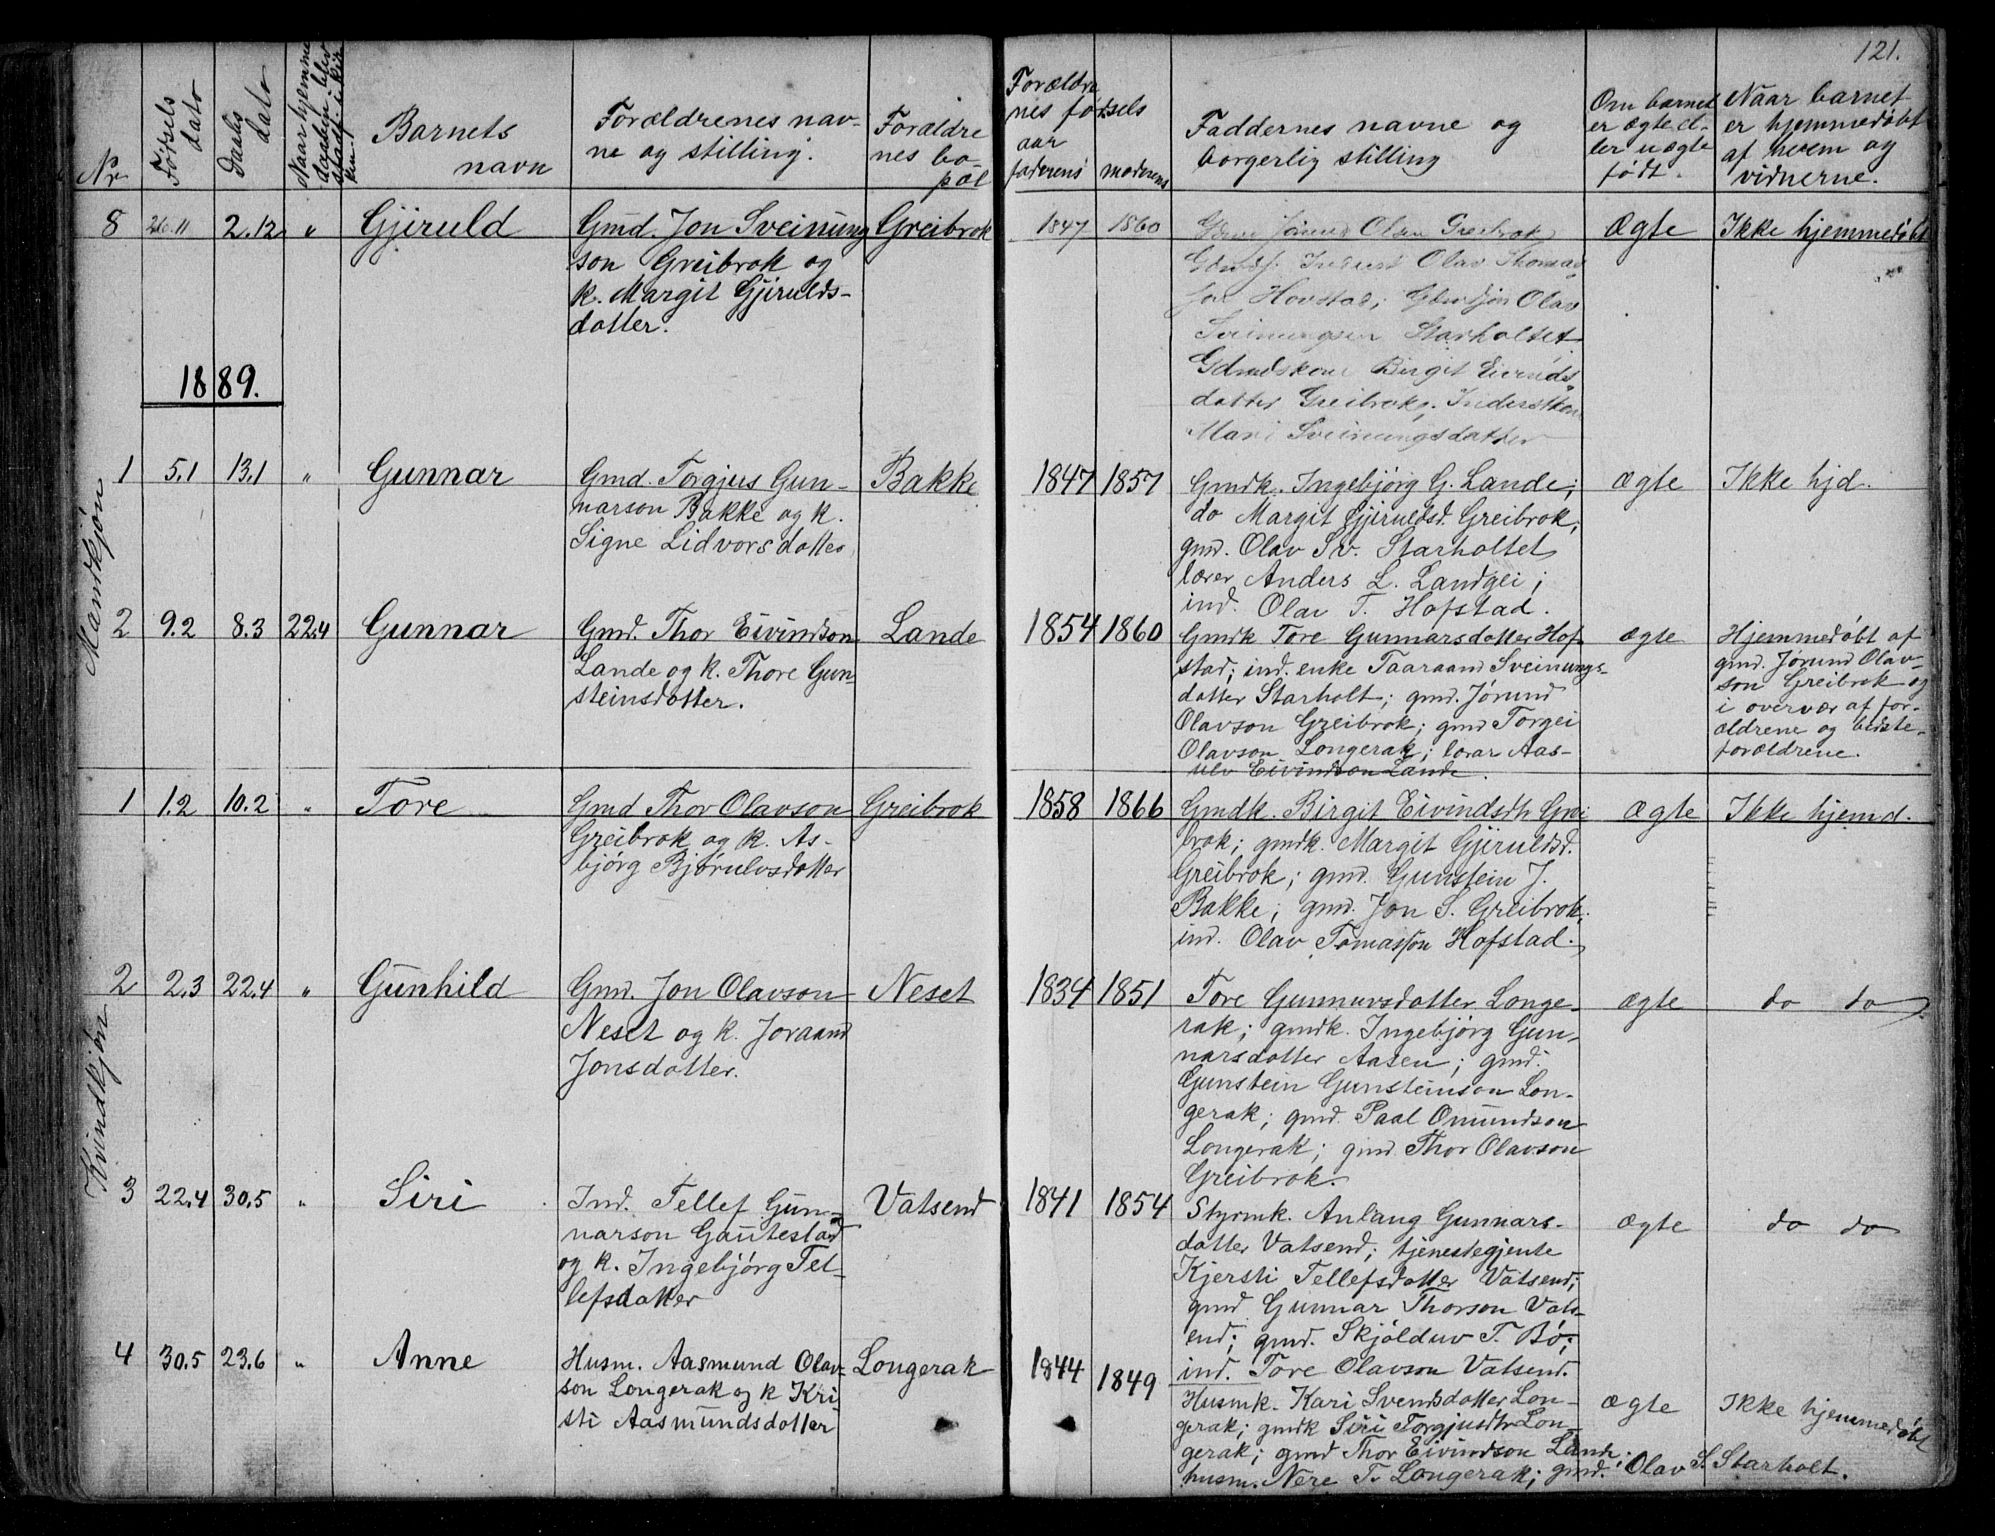 121.
Nr
Fødsels dato
Daabs dato
Naar hjemme daaben blev stadf. i kirken
Barnets navn
Forældrenes navne og stilling.
Forældrenes bopæl
Forældrenes fødselsaar
faderens
moderens
Faddernes navne og borgerlig stilling
Om barnet er ægte eller uægte født.
Naar barnet er hjemmedøbt af hvem og vidnerne.
8 26.11 2.12 " Gjiruld
Gmd. Jon Sveinung
son Greibrok og
k. Margit Gjirulds-
datter.
Greibrok
1847 1860
Olav Greibrok
Olav Thomas
son Hovstad; Olav
Sveinungsen Starholtet
Birgit Eivinds
datter Greibrok;
Mari Sveinungsdatter
Ægte
Ikke hjemmedøbt
1889.
Mandkjøn
1 5.1 13.1 " Gunnar
Gmd. Torgjus Gun-
narson Bakke og k.
Signe Lidvorsdotter
Bakke
1847 1857
Gmdk. Ingebjørg G. Lande;
do Margit Gjiruldsd. Greibrok;
gmd. Olav Sv. Starholtet
lærer Anders L. Landgei;
ind. Olav T. Hofstad.
Ægte
Ikke hjd.
2 9.2 8.3 22.4 Gunnar
Gmd. Thor Eivindson
Lande og k. Thore Gun-
steinsdotter.
Lande
1854 1860
Gmdk Tore Gunnarsdotter Hof-
stad; ind. enke Taaraand Sveinungs-
dotter Starholt; gmd. Jørund
Olavson Greibrok; gmd Torgei
Olavson Longerak; lærar Aas-
ulv Eivindson Lande.
ægte
Hjemmedøbt af
gmd. Jørund Olav-
son Greibrok og
i overvær af for-
ældrene og bedste-
forældrene.
Kvindkjøn
1 1.2 10.2 " Tore
Gmd Thor Olavson
Greibrok og k. As-
bjørg Bjørulvsdotter
Greibrok
1858 1866
Gmdk. Birgit Eivindsdtr Grei
brok; gmdk. Margit Gjiruldsd.
Greibrok; gmd. Gunstein J.
Bakke; gmd. Jon S. Greibrok;
ind. Olav Tomasson Hofstad.
ægte
Ikke hjemd.
2 2.3 22.4 " Gunhild
Gmd. Jon Olavson
Neset og k. Joraand
Jonsdotter.
Neset
1834 1851
Tore Gunnarsdotter Longe-
rak; gmdk. Ingebjørg Gun-
narsdotter Aasen; gmd.
Gunstein Gunsteinson Lon-
gerak; gmd. Paal Omundson
Longerak; gmd. Thor Olavson
Greibrok.
ægte
do do
3 22.4 30.5 " Siri
Ind. Tellef Gun-
narson Gautestad
og k. Ingebjørg Tel-
lefsdotter
Vatsend
1841 1854
Styrmk. Anlaug Gunnars-
datter Vatsend; tjenestegjente
Kjersti Tellefsdotter Vatsend;
gmd Gunnar Thorson Vats-
end; gmd. Skjølduv T. Bø;
ind. Tore Olavson Vatsend.
ægte
do do
4 30.5 23.6 " Anne
Husm. Aasmund Olav-
son Longerak og k Kri
sti Aasmundsdotter
Longerak
1844 1849
Husmk. Kari Svensdotter Lon-
gerak; gmdk Siri Torgjusdtr Lon-
gerak; gmd Thor Eivindson Lande;
husm. Nere T. Longerak; gmd. Olav S. Starholt.
ægte
Ikke hjemmedøbt